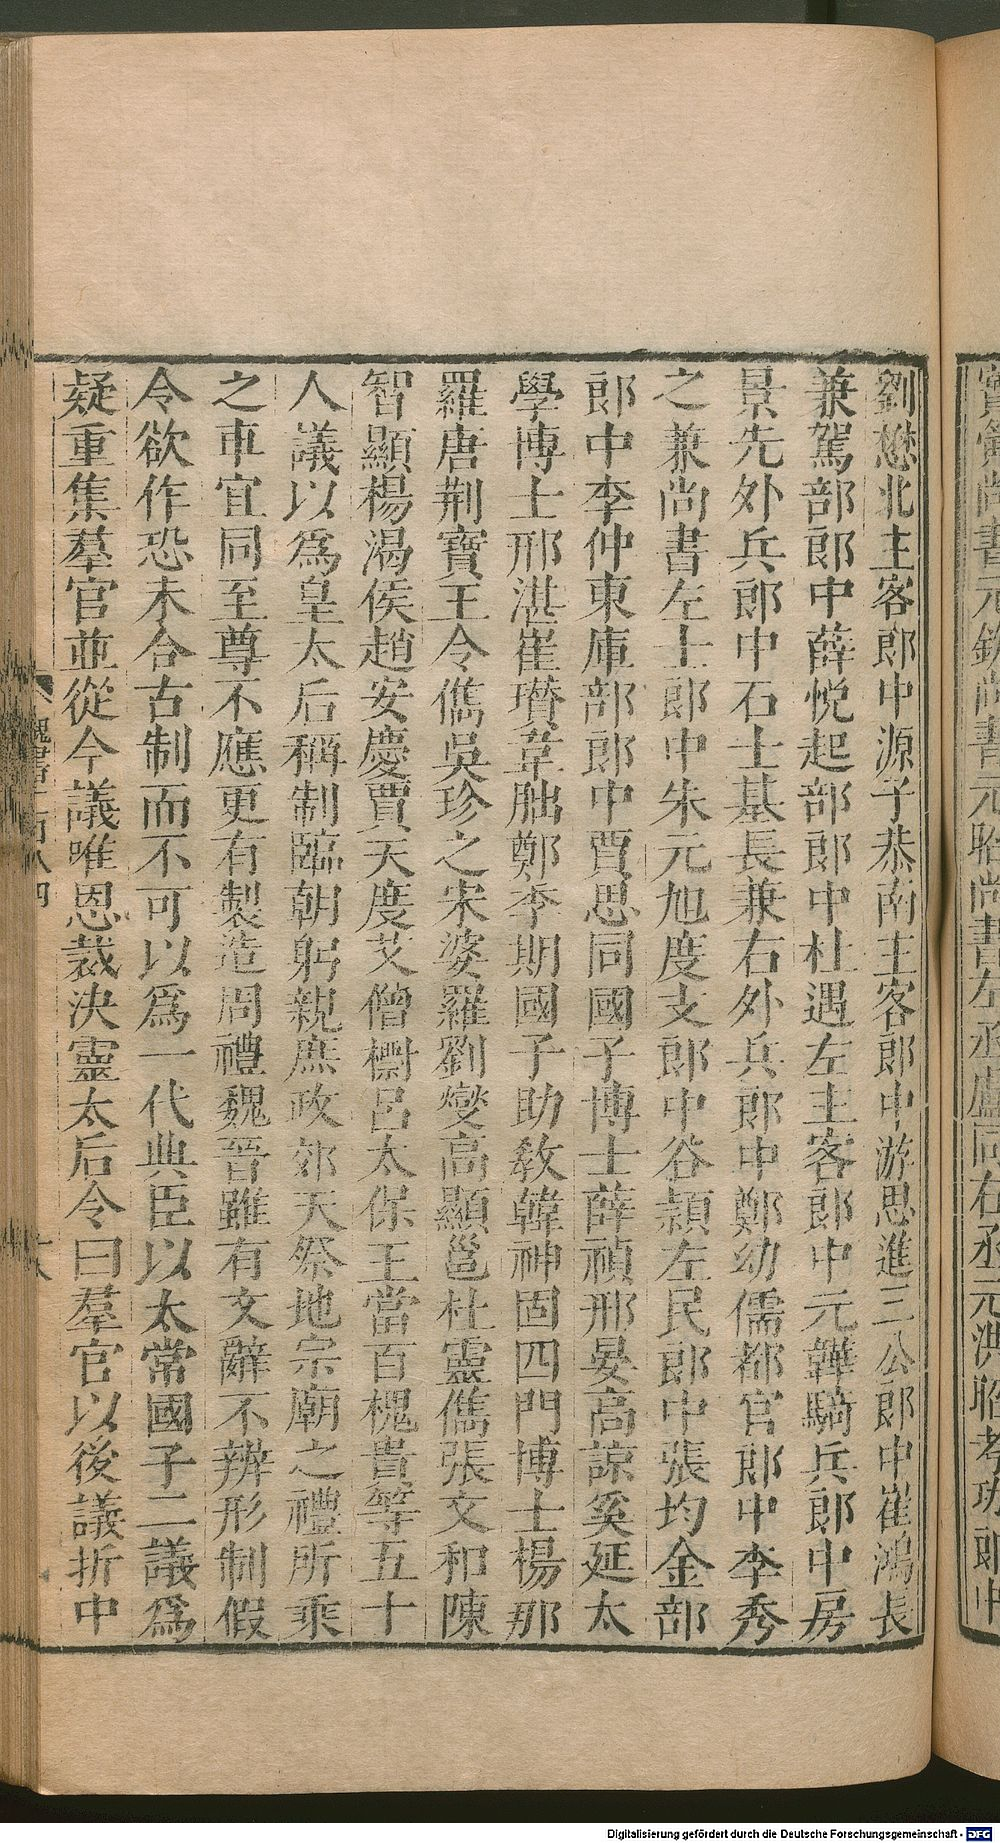 劉懋北主客郎中源子恭南主客郎中游思進三公郎中崔鴻長
兼駕部郎中薛悅起部郎中杜遇左主客郎中元韡騎兵郎中房
景先外兵郎中石士基長兼右外兵郎中鄭幼儒都官郎中李秀
之兼尚書左士郎中朱元旭度支郎中谷頴左民郎中張均金部
郎中李仲東庫部郎中賈思同國子博士薛禎邢晏高諒奚延太
學博士邢湛崔瓚韋朏鄭季期國子助教韓神固四門博士楊那
羅唐荆寶王令儁吳珍之宋婆羅劉燮高顯邕杜靈儁張文和陳
智顯楊渴侯趙安慶賈天度艾僧樹呂太保王當百槐貴等五十
人議以爲皇太后稱制臨朝躬親庶政郊天祭地宗廟之禮所乘
之車宜同至尊不應更有製造周禮魏晉雖有文辭不辨形制假
令欲作恐未合古制而不可以爲一代典臣以太常國子二議爲
疑重集羣官並從今議唯恩裁決靈太后令曰羣官以後議折中
魏書一百八四
十六
尚書元欽尚書元昭尚書左丞盧同右丞元洪昭考功郎中
Digitalisierung gefördert durch die Deutsche Forschungsgemeinschaft - DFG